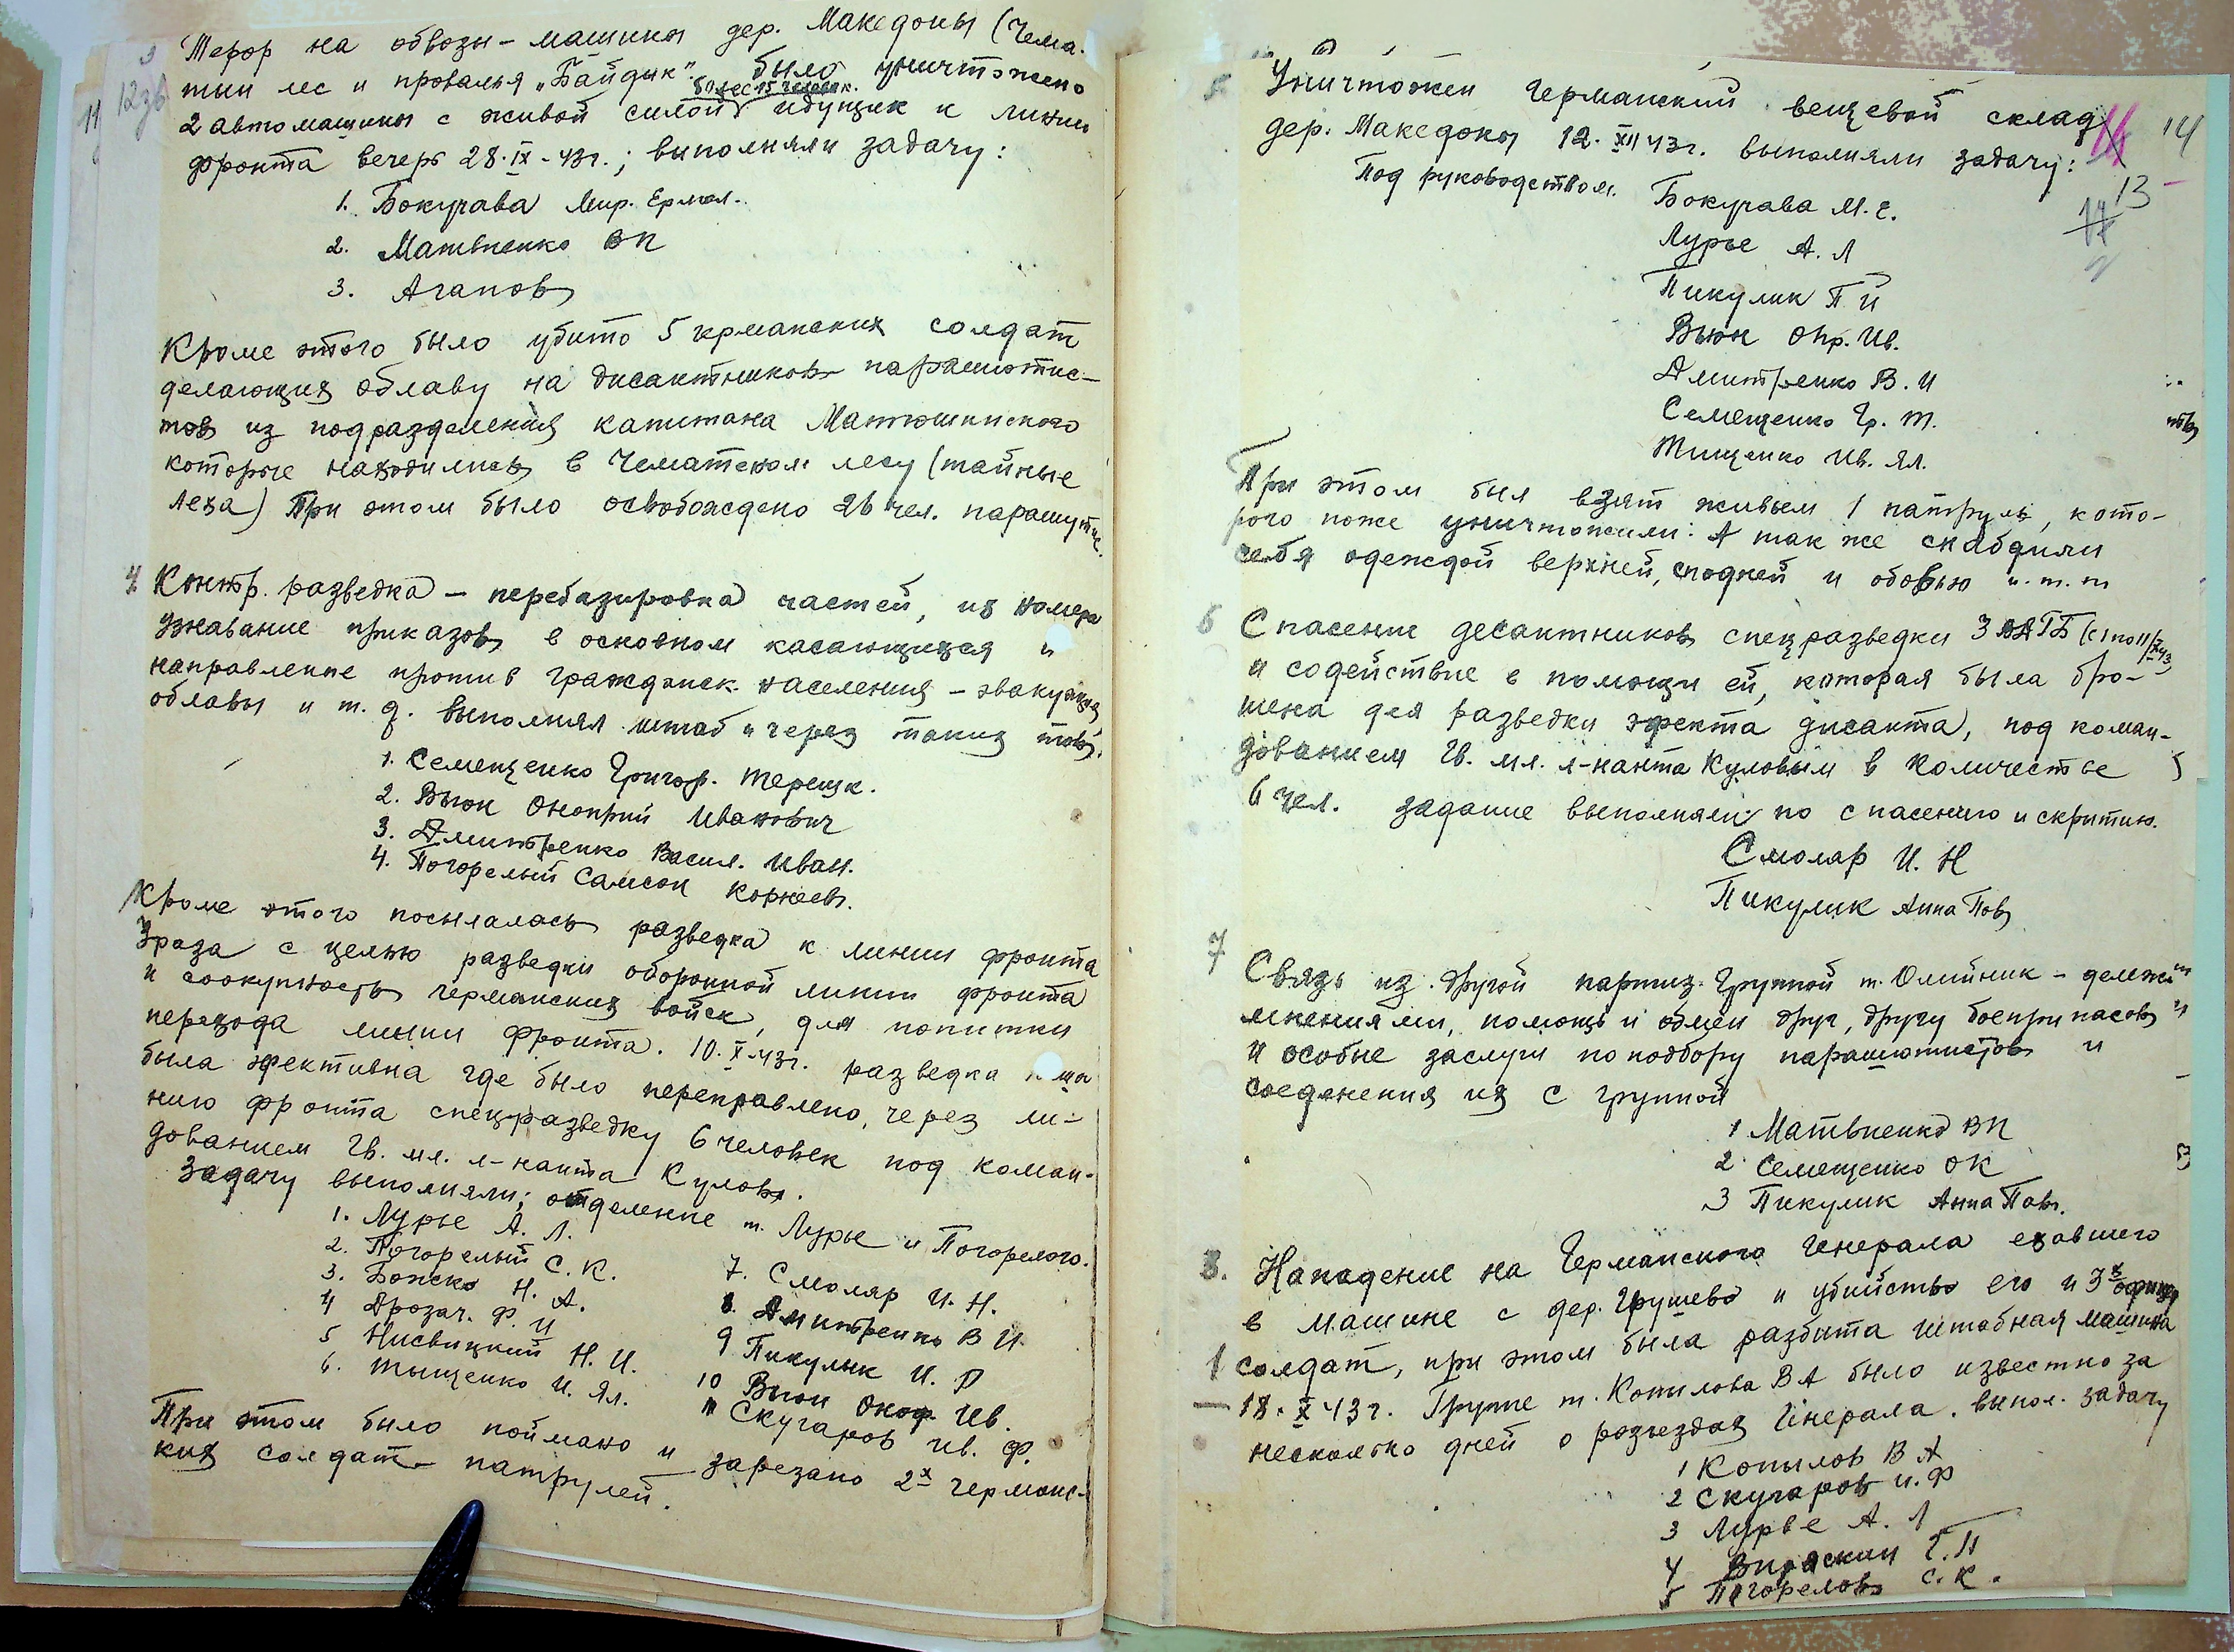 3 Терор на обвозы - машины дер. Македоны (Чема-
тин лес и провалья „Байдик". было уничтожено
более 15 человек.
2 автомашины с живой силой идущих к линии
фронта вечер 28.IX-43г.; выполняли задачу:
1. Бокучава Мир. Ермол.
2. Матвиенко ВП
3. Агапов
Кроме этого было убито 5 германских солдат
делающих облаву на дисантников парашютис-
тов из подразделения капитана Матюшинского
которые находились в Чематском лесу (тайные
леха) При этом было освобождено 26 чел. парашутис.
4 Контр. разведка - перебазировка частей, их номера
узнавание приказов в основном касающихся и
направление против граждэнск. населения - эвакуация
облавы и т. д. выполнял штаб и через таких тов.
1. Семещенко Григор. Терешк.
2. Вьюн Оноприй Иванович
3. Дмитренко Васил. Иван.
4. Погорелый Самсон Корнеев.
Кроме этого посылалась разведка к линии фронта
3 раза с целью разведки оборонной линии фронта
и соокупность германских войск, для попитки
перехода линии фронта. 10.X-43г. разведка
была эфективна где было переправлено, через ли-
нию фронта спецразведку 6 человек под коман-
дованием Гв. мл. л-нанта Кулов.
Задачу выполняли; отделение т. Лурье и Погорелого.
1. Лурье А. Л.
2. Погорелый С. К.
3. Бонско Н. А.
4 Дрозач. Ф. И
5 Нисвицкий Н. И.
6. Тищенко И. Ял.
7. Смоляр И. Н.
8. Дмитренко В И.
9 Пикулик И. П
10 Вьюн Оноф. Ив.
11 Скугаров Ив. Ф.
При этом было поймано и зарезано 2х германс-
ких солдат - патрулей.
11 12зв
14
13
5 Уничтожен Германский вещевой склад
дер. Македоны 12.XII 43г. выполняли задачу:
Под руководством. Бокучава М. Е.
Лурье А. Л
Пикулик П И
Вьюн Онр. Ив.
Дмитренко В. И
Семещенко Гр. Т.
Тищенко Ив. Ял.
При этом был взят живьем 1 патруль, кото-
рого поже уничтожили: А так же снабдили
себя одеждой верхней, сподней и обовью и. т. п
6 Спасение десантников спецразведки 3
и содействие в помощи ей, которая была бро-
шена для разведки эфекта дисанта, под коман-
дованием Гв. мл. л-нанта Куловым в количестве
6 чел. задание выполняли по спасению и скритию.
Смоляр И. Н
Пикулик Анна Пов
7 Связь из другой партиз. группой т. Олийник -
мнениями, помощь и обмен друг, другу боеприпасов
и особые заслуги по подбору парашютистов и
соеденения их с группой
1 Матвиенко ВП
2 Семещенко ОК
3 Пикулик Анна Пов.
8. Нападение на Германского Генерала ехавшего
в машине с дер. Грушево и убийство его и 3х
1 солдат, при этом была разбита штабная машина
18.X 43г. Группе т. Копилова ВА было известно за
несколько дней о разъездах Генерала. выпол. задачу
1 Копилов В А
2 Скугаров И. Ф
3 Лурье А. Л
4 Вираскин Г. П
5 Погорелов С. К.